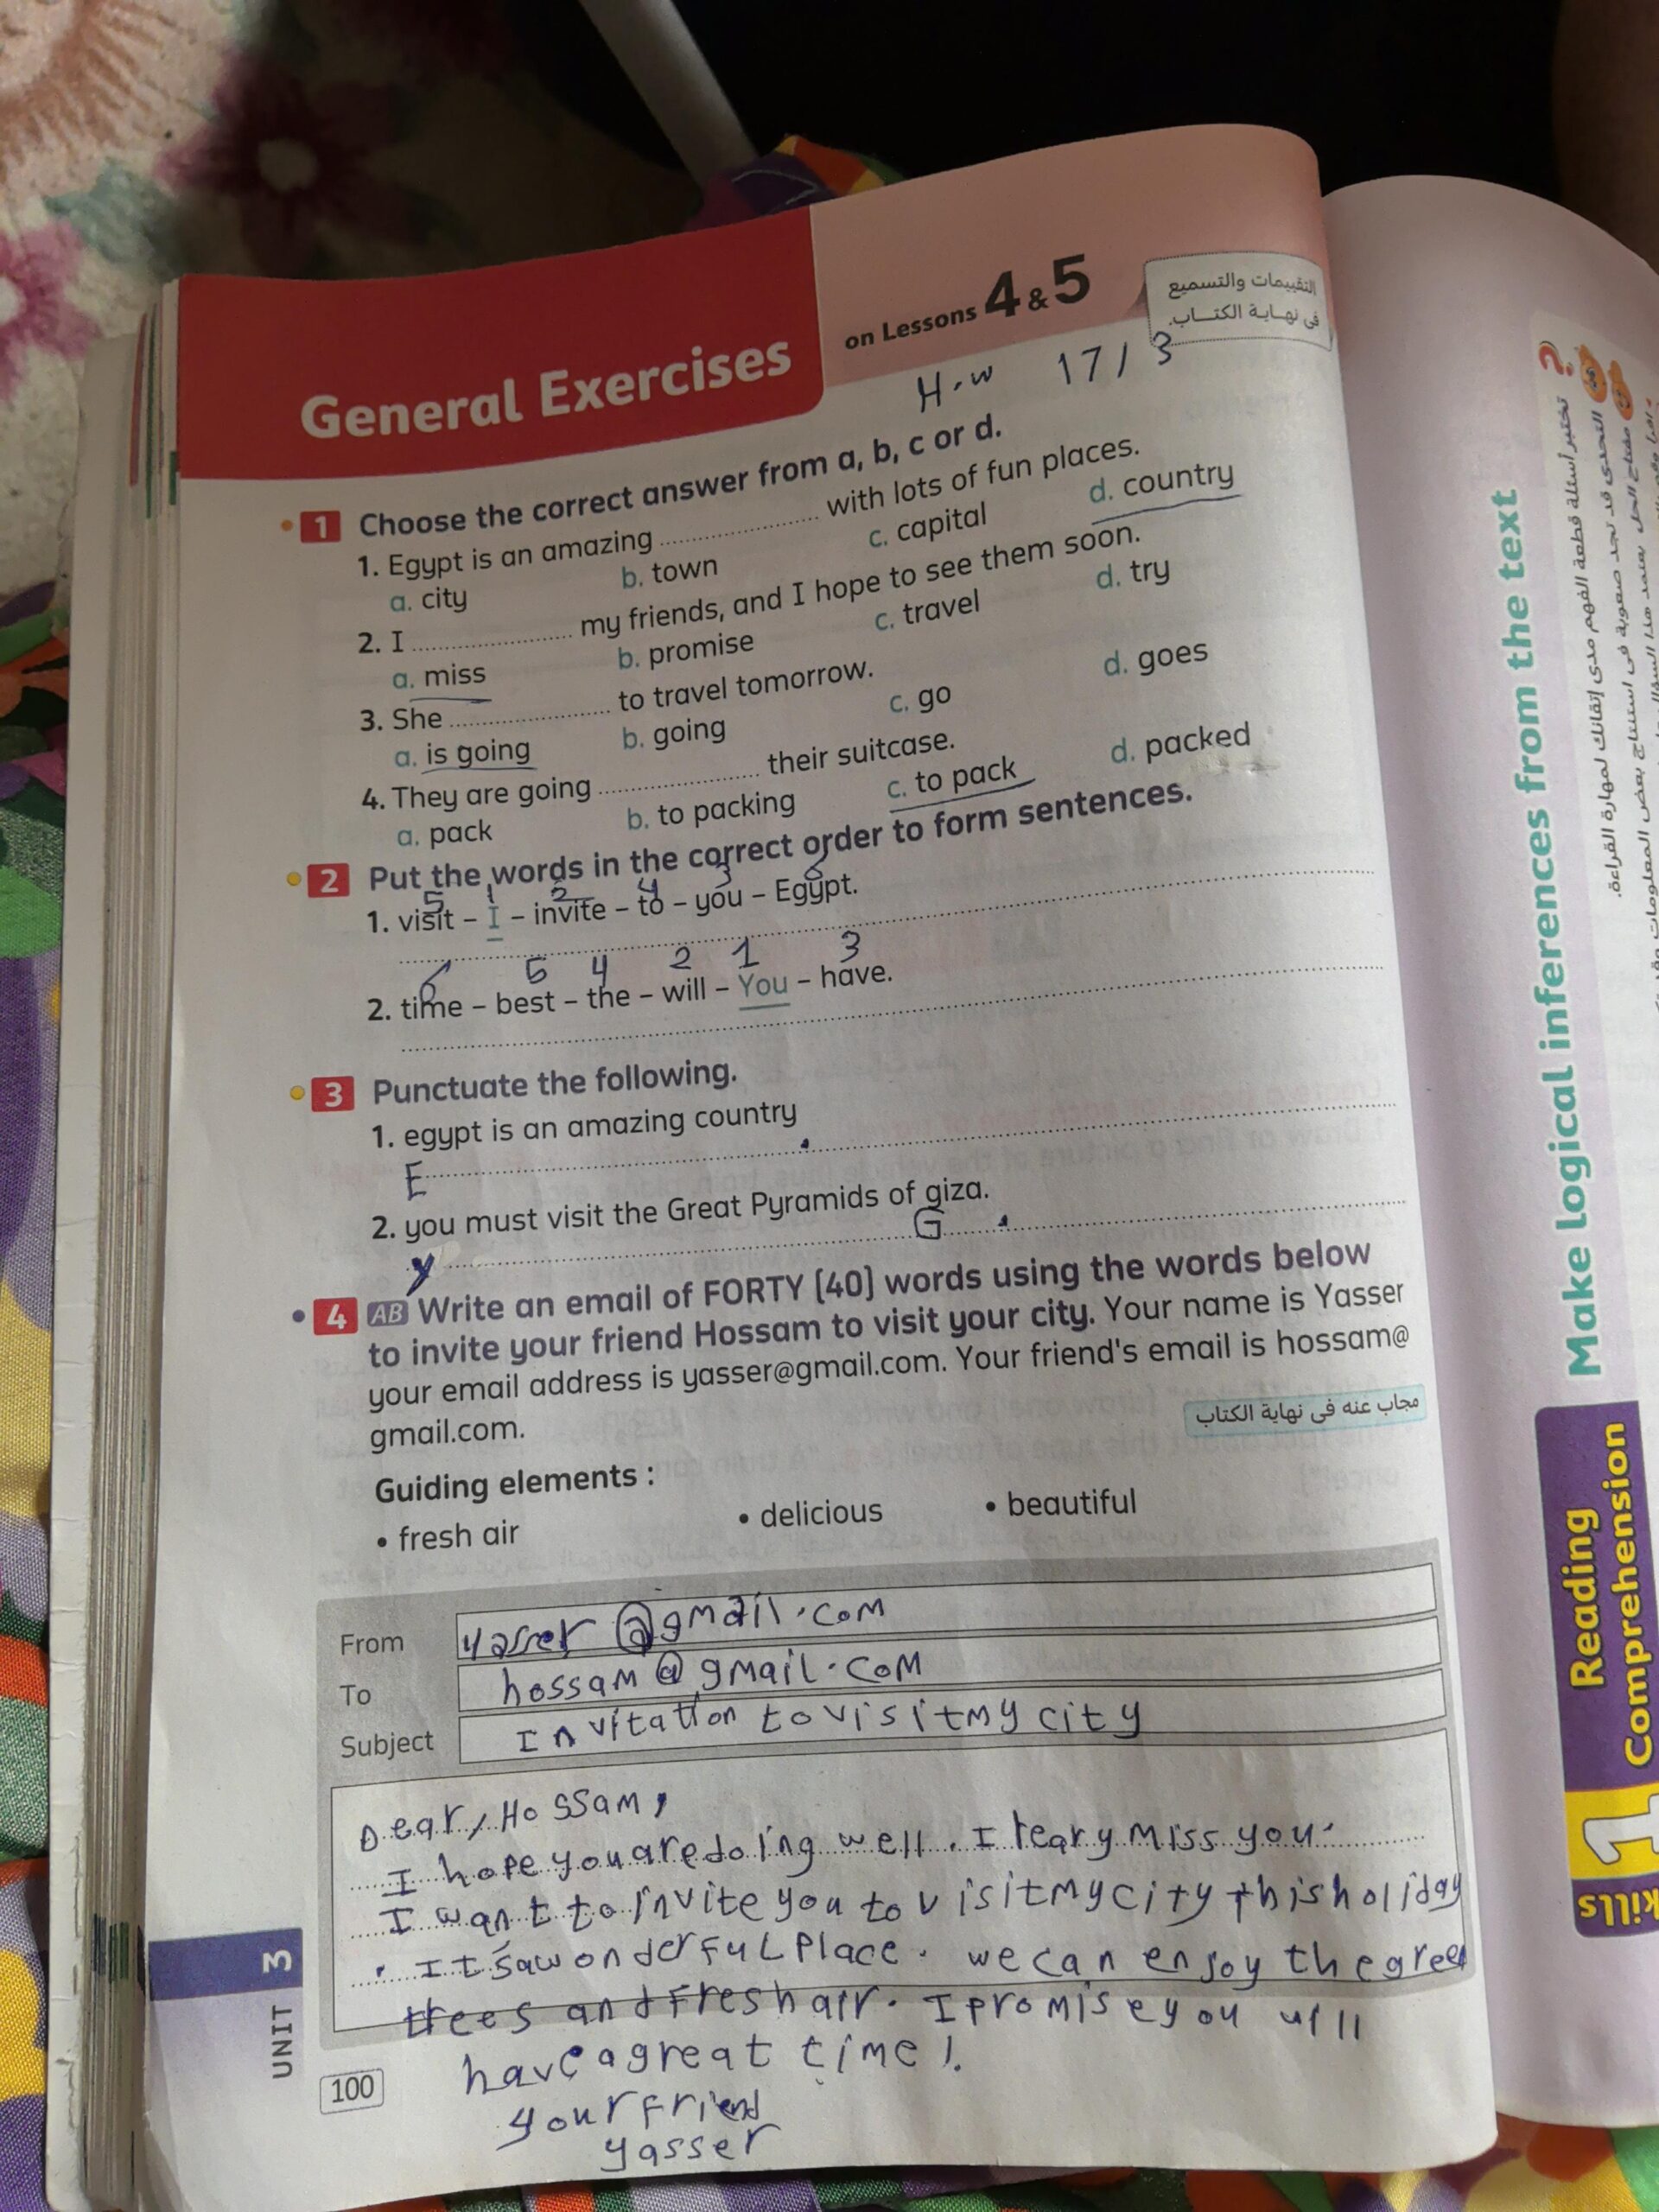 General Exercises
on Lessons 4 & 5
التقييمات والتسميع
فى نهاية الكتاب.
H.w 17/3
1 Choose the correct answer from a, b, c or d.
1. Egypt is an amazing .................... with lots of fun places.
a. city b. town c. capital d. country
2. I .................... my friends, and I hope to see them soon.
a. miss b. promise c. travel d. try
3. She .................... to travel tomorrow.
a. is going b. going c. go d. goes
4. They are going .................... their suitcase.
a. pack b. to packing c. to pack d. packed
2 Put the words in the correct order to form sentences.
5 1 2 4 3 6
1. visit – I – invite – to – you – Egypt.
6 5 4 2 1 3
2. time – best – the – will – You – have.
3 Punctuate the following.
1. egypt is an amazing country
E .
2. you must visit the Great Pyramids of giza.
y G .
4 AB Write an email of FORTY (40) words using the words below
to invite your friend Hossam to visit your city. Your name is Yasser
your email address is yasser@gmail.com. Your friend's email is hossam@
gmail.com.
مجاب عنه فى نهاية الكتاب
Guiding elements :
• fresh air • delicious • beautiful
From yasser @gmail.com
To hossam@gmail.com
Subject Invitation to visit my city
Dear, Hossam,
I hope you are doing well. I teary miss you.
I want to invite you to visit my city this holiday
. It's a wonderful place. we can enjoy the gree
trees and fresh air. I promise you will
have a great time!.
your friend
yasser
UNIT 3
100
Make logical inferences from the text
تختبر أسئلة قطعة الفهم مدى إتقانك لمهارة القراءة.
Reading
Comprehension
1
kills